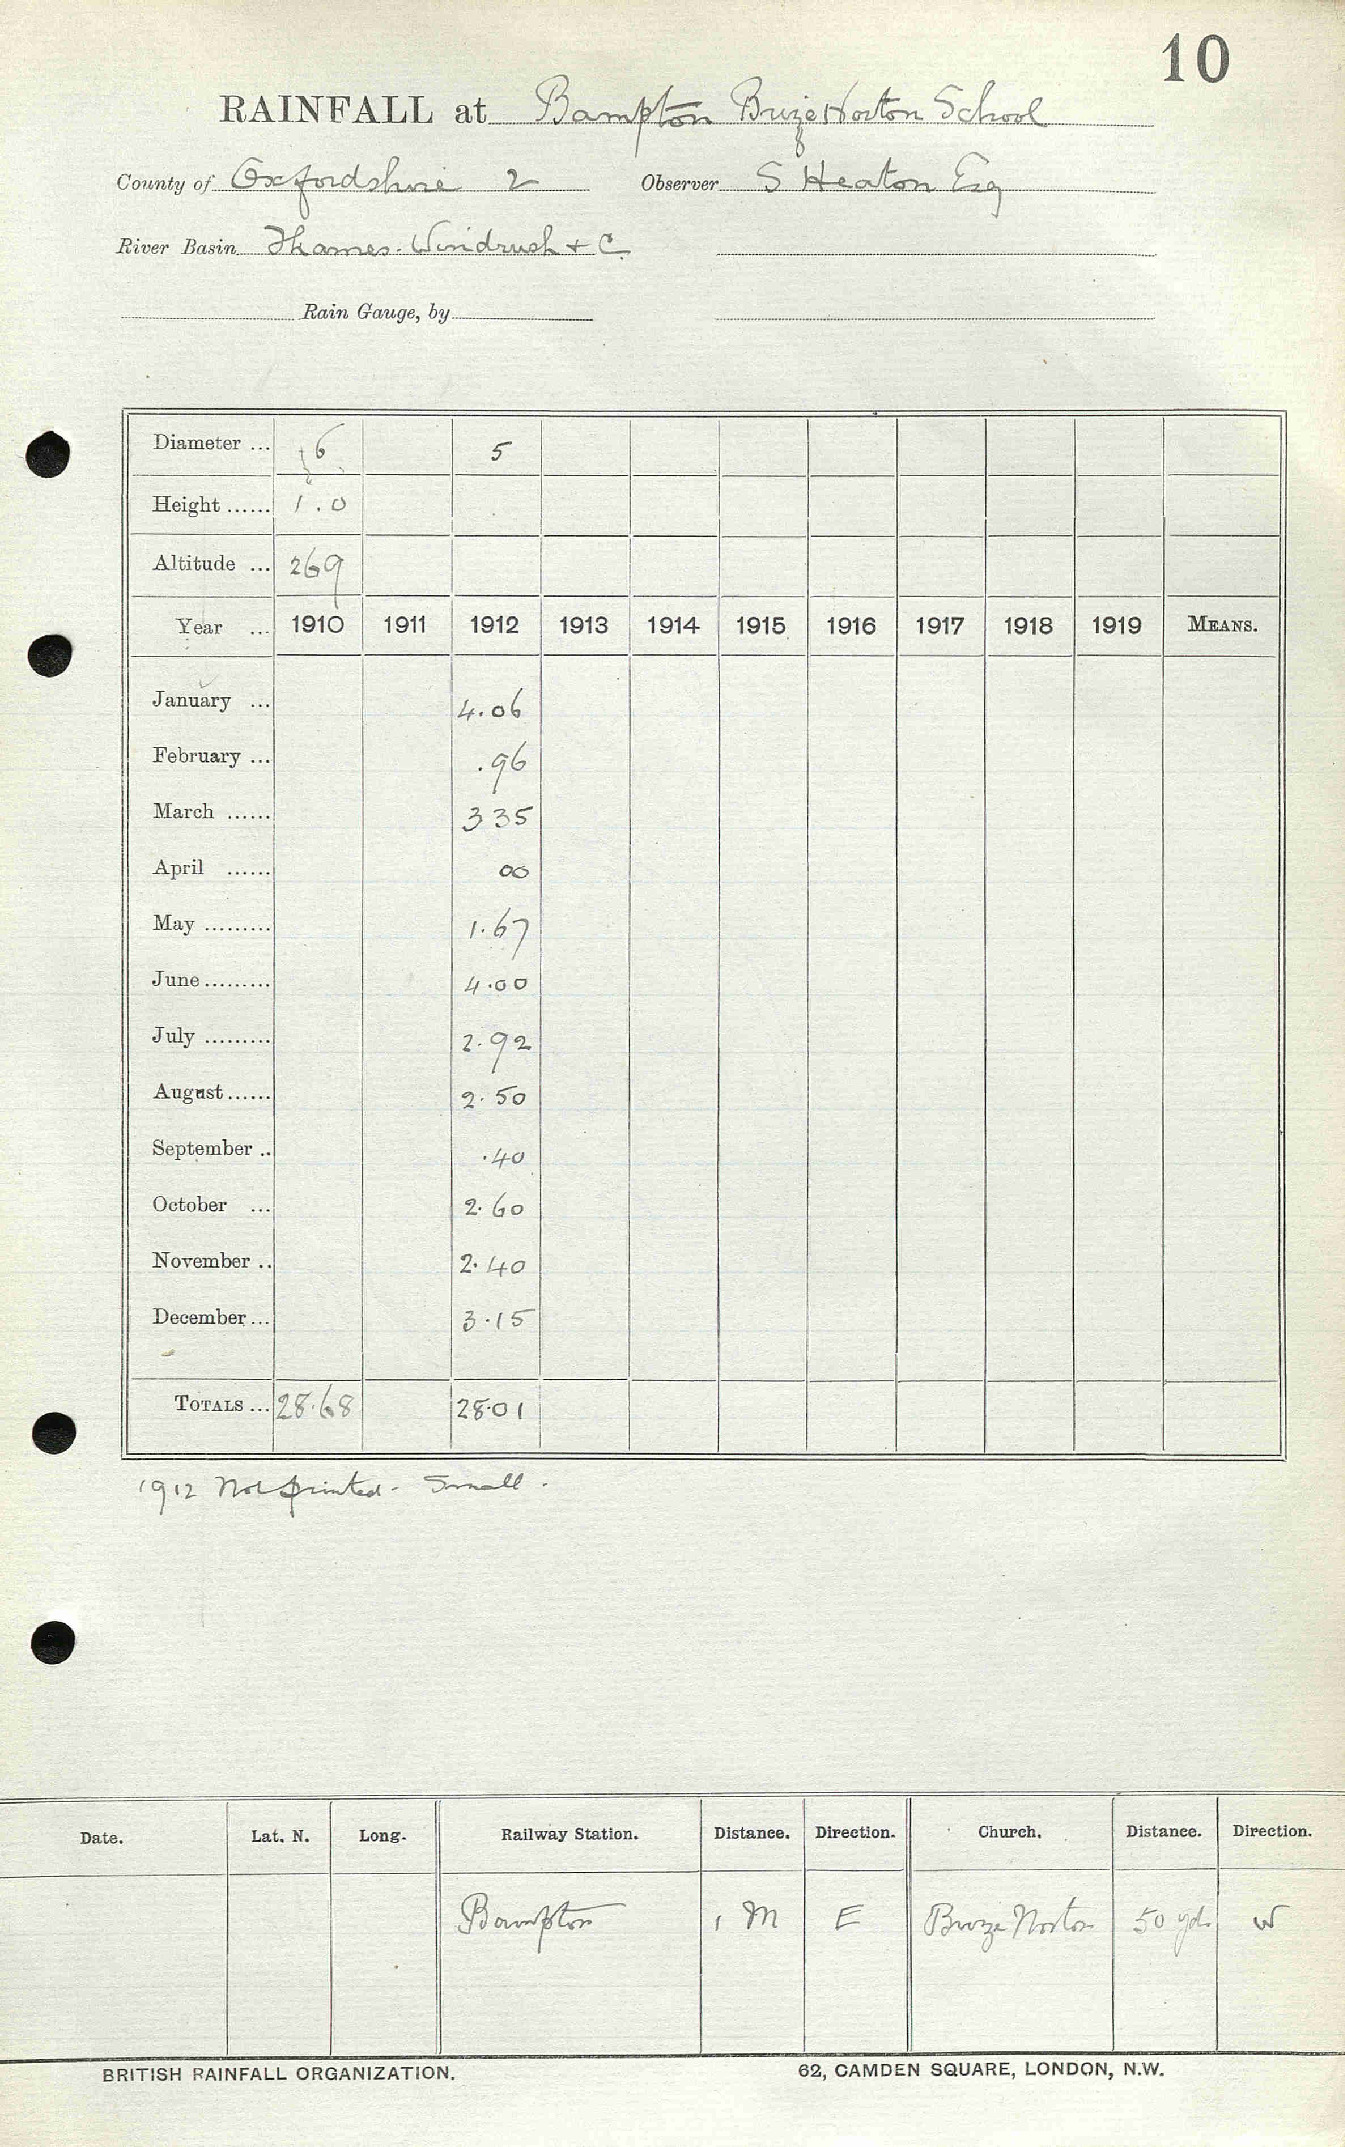 10
RAINFALL at Bampton Brize Norton School
County of Oxfordshire 2 Observer S Heaton Esq
River Basin Thames. Windrush + C
Rain Gauge, by
Diameter ... 6 5
Height ...... 1.0
Altitude ... 269
Year ... 1910 1911 1912 1913 1914 1915 1916 1917 1918 1919 MEANS.
January ... 4.06
February ... .96
March ...... 3 35
April ...... 00
May ......... 1.67
June ......... 4.00
July ......... 2.92
August ...... 2.50
September .. .40
October ... 2.60
November .. 2.40
December ... 3.15
TOTALS ... 28.68 28.01
1912 Not printed - Small.
Date. Lat. N. Long. Railway Station. Distance. Direction. Church. Distance. Direction.
Bampton 1 M E Brize Norton 50 yds W
BRITISH RAINFALL ORGANIZATION. 62, CAMDEN SQUARE, LONDON, N.W.